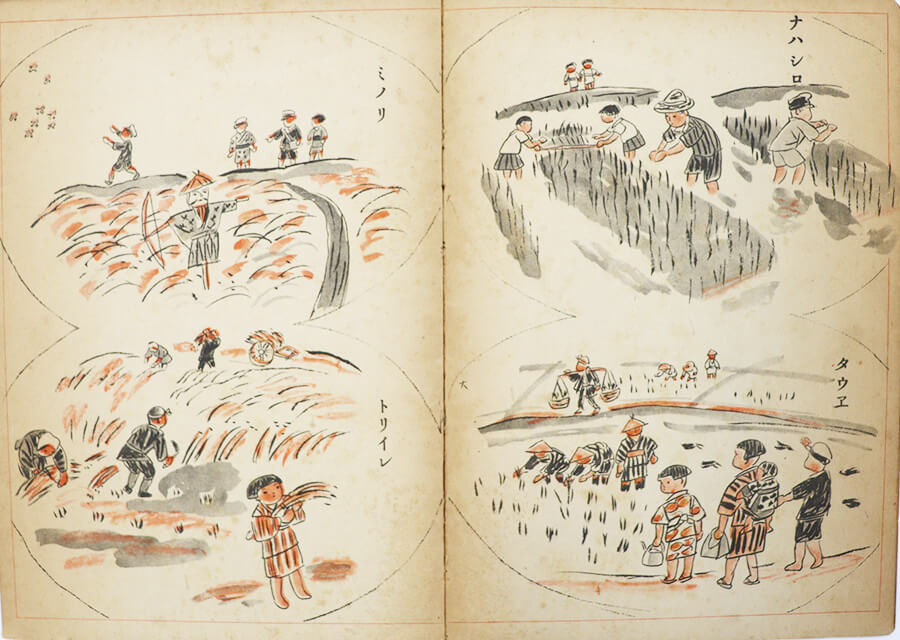 ナハシロ
タウヱ
ミノリ
トリイレ